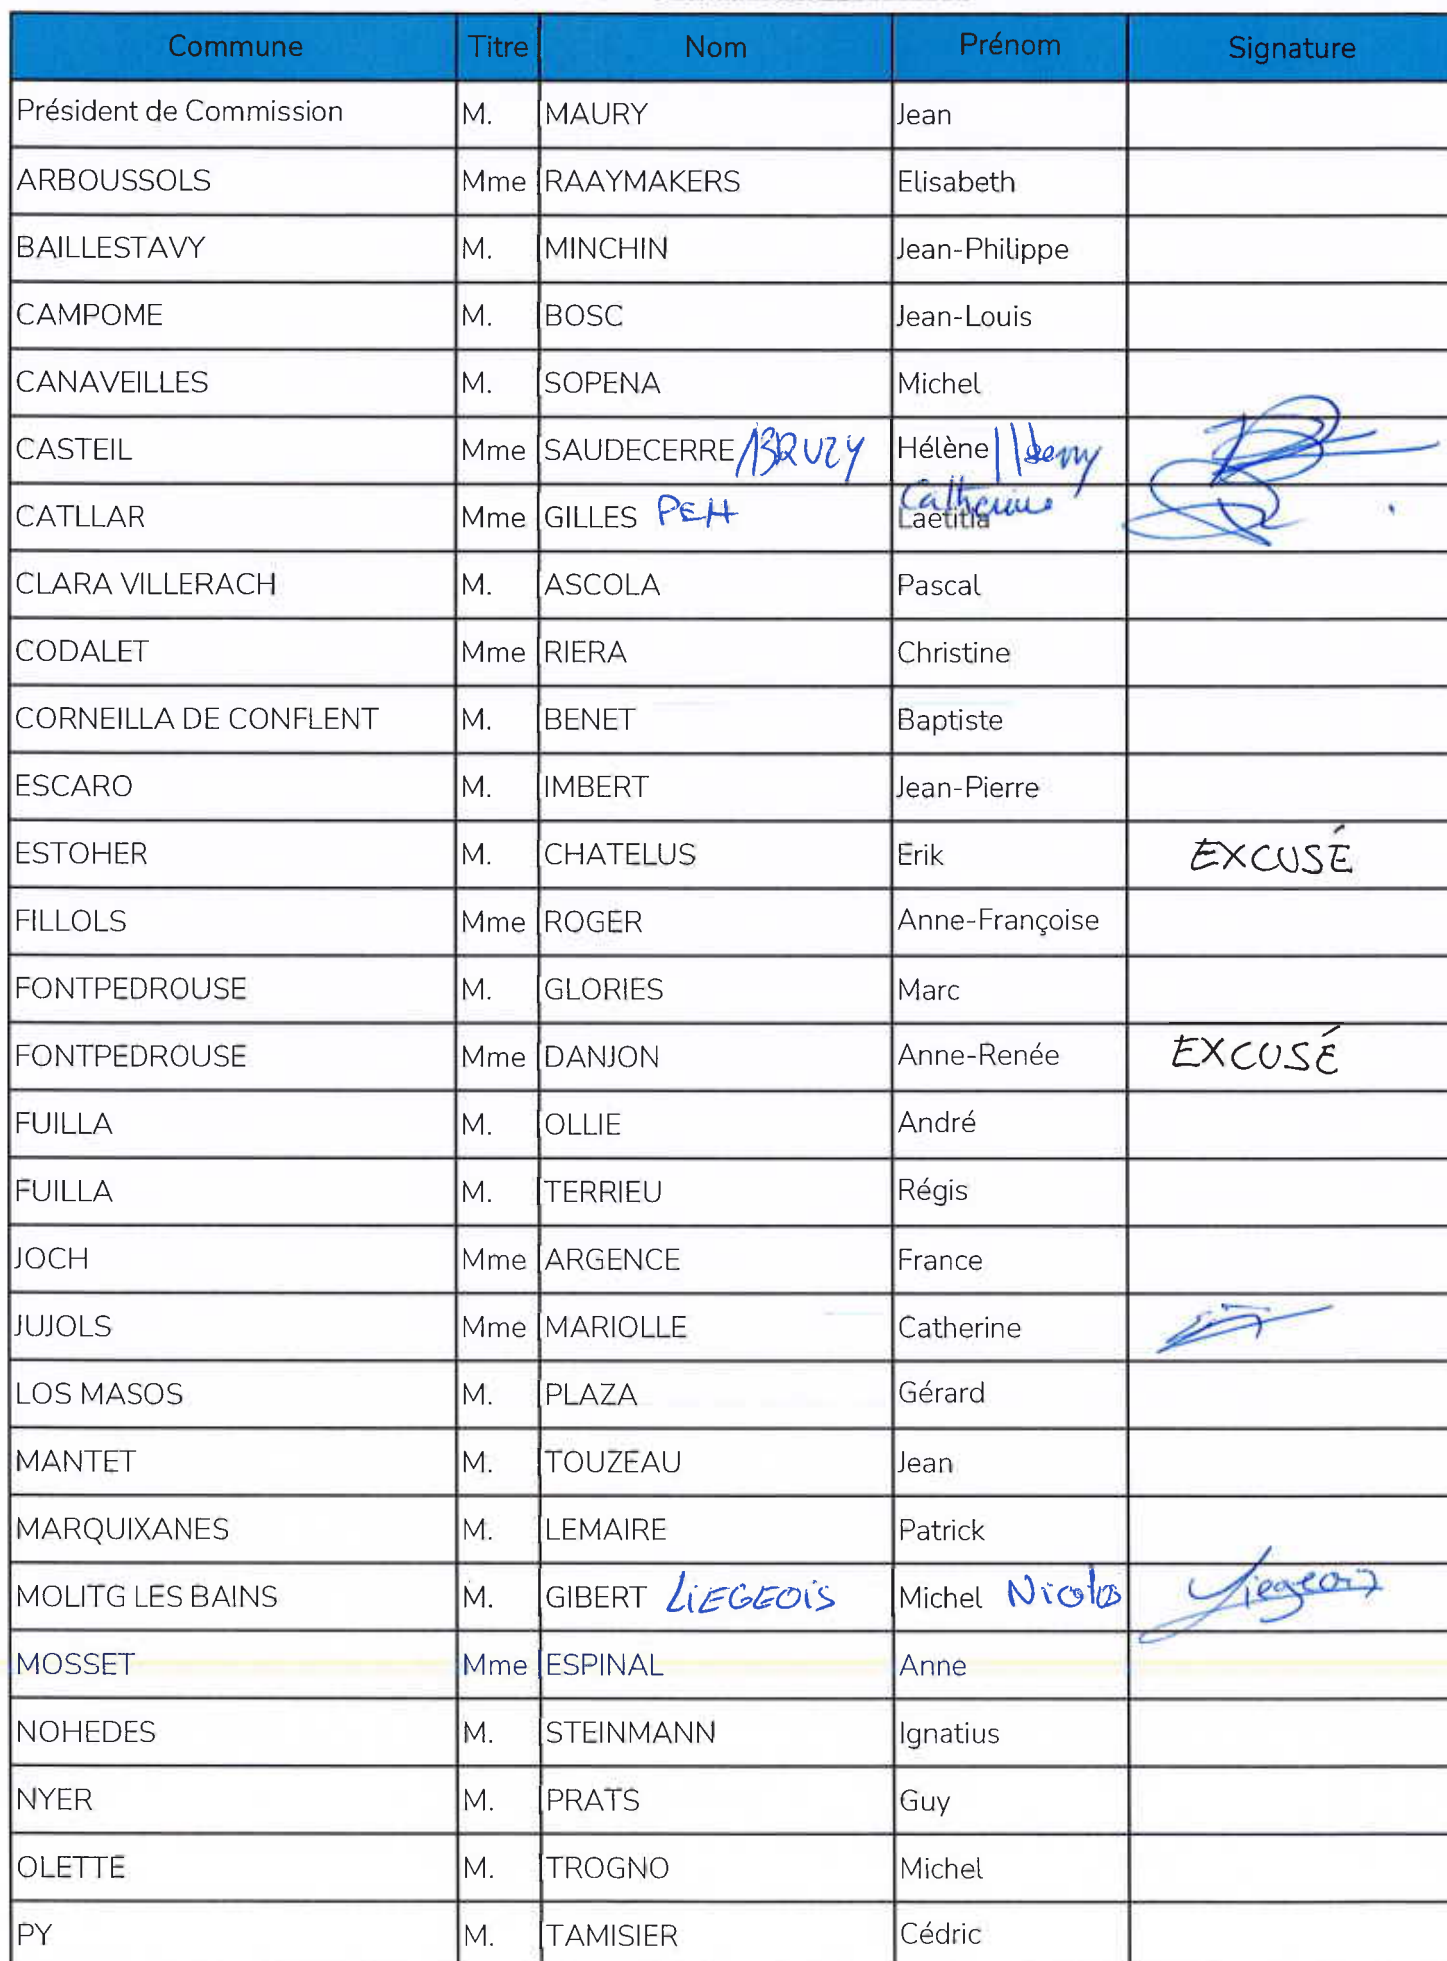 Commune Titre Nom Prénom Signature
Président de Commission M. MAURY Jean
ARBOUSSOLS Mme RAAYMAKERS Elisabeth
BAILLESTAVY M. MINCHIN Jean-Philippe
CAMPOME M. BOSC Jean-Louis
CANAVEILLES M. SOPENA Michel
CASTEIL Mme SAUDECERRE /BRUZY Hélène
CATLLAR Mme GILLES PEH Catherine Laetitia
CLARA VILLERACH M. ASCOLA Pascal
CODALET Mme RIERA Christine
CORNEILLA DE CONFLENT M. BENET Baptiste
ESCARO M. IMBERT Jean-Pierre
ESTOHER M. CHATELUS Erik EXCUSÉ
FILLOLS Mme ROGER Anne-Françoise
FONTPEDROUSE M. GLORIES Marc
FONTPEDROUSE Mme DANJON Anne-Renée EXCUSÉ
FUILLA M. OLLIE André
FUILLA M. TERRIEU Régis
JOCH Mme ARGENCE France
JUJOLS Mme MARIOLLE Catherine
LOS MASOS M. PLAZA Gérard
MANTET M. TOUZEAU Jean
MARQUIXANES M. LEMAIRE Patrick
MOLITG LES BAINS M. GIBERT LiEGEOiS Michel Nicolas Liegeois
MOSSET Mme ESPINAL Anne
NOHEDES M. STEINMANN Ignatius
NYER M. PRATS Guy
OLETTE M. TROGNO Michel
PY M. TAMISIER Cédric